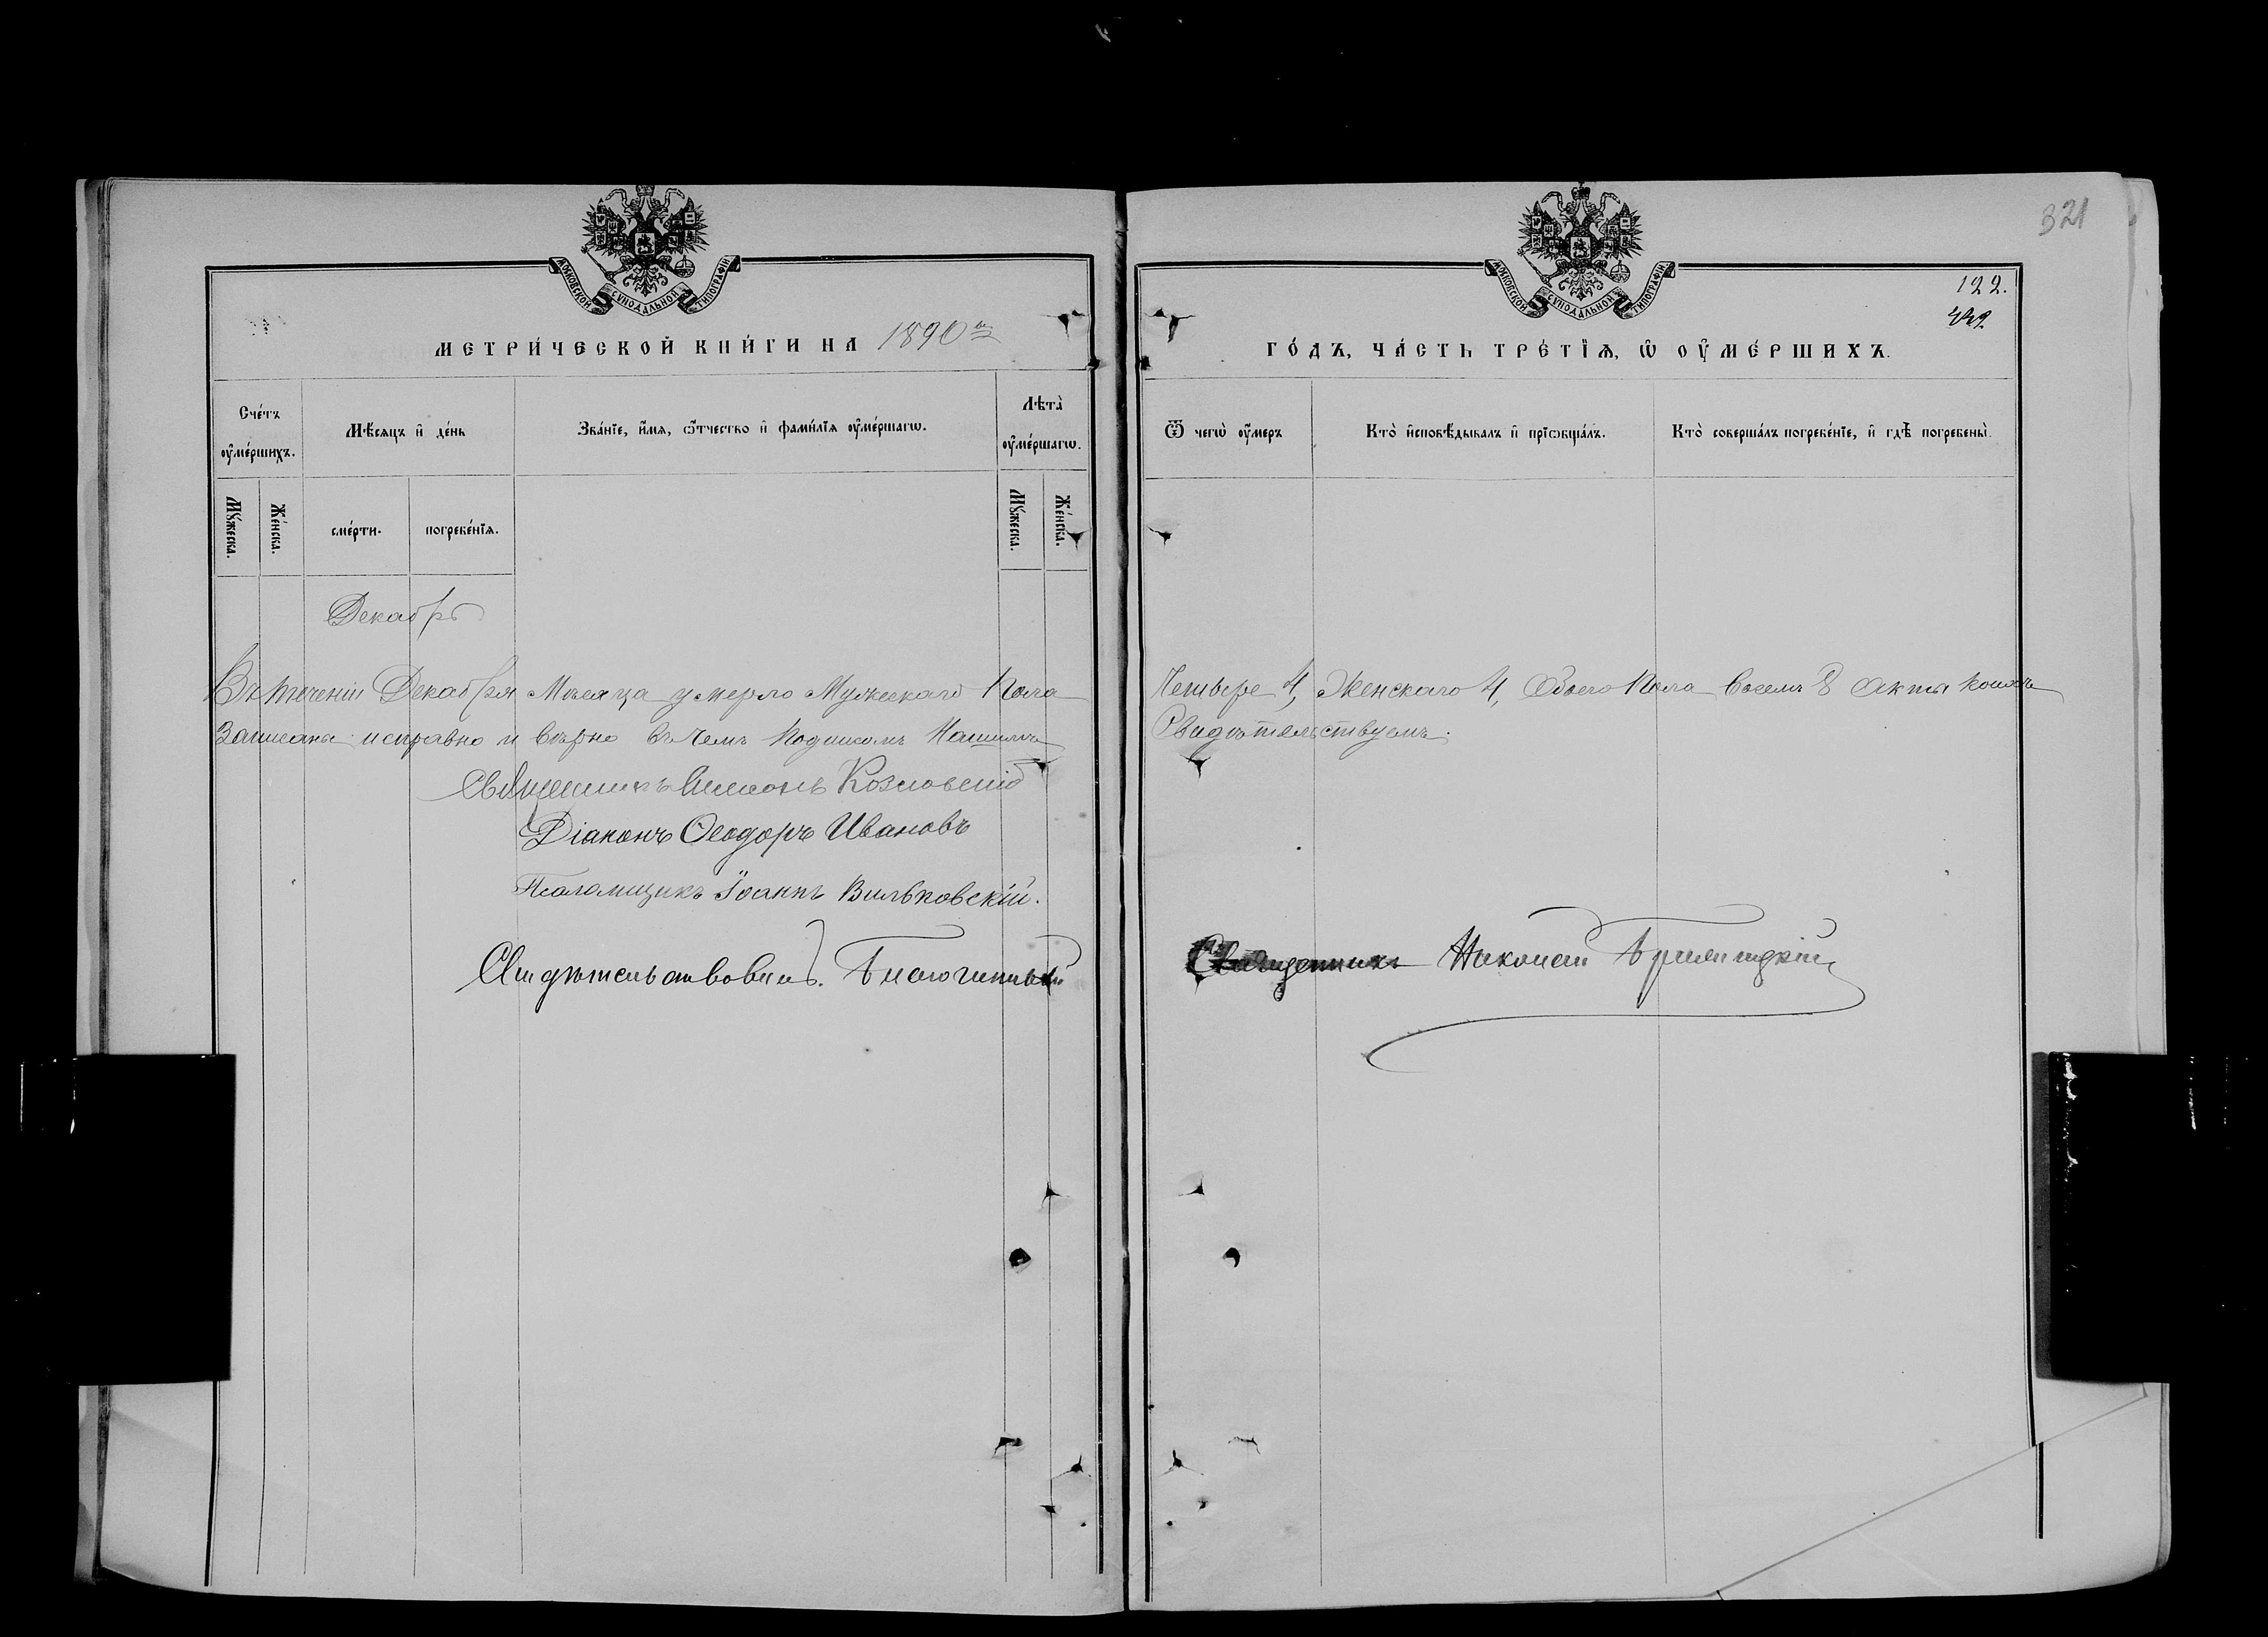 МОСКОВСКОЙ СѴНОДАЛЬНОЙ ТИПОГРАФІИ
МЕТРИ́ЧЕСКОЙ КНИ́ГИ НА 1890
Сче́тъ ᲂу҆ме́ршихъ.
Мѣ́сяцъ и҆ де́нь
Зва́нїе, и҆́мѧ, ѻ҆́тчество и҆ фами́лїѧ ᲂу҆ме́ршагѡ.
Лѣта̀ ᲂу҆ме́ршагѡ.
Мꙋ́жеска.
Же́нска.
сме́рти.
погребе́нїѧ.
Мꙋ́жеска.
Же́нска.
Декабрь
Въ теченіи Декабря Мѣсяца умерло Мужескаго Пола
Записана исправно и вѣрно въ чемъ
Священникъ Симеонъ Козловскій
Діаконъ Ѳеодоръ Ивановъ
Псаломщикъ Іоаннъ Вильковскій.
Свидѣтельствовалъ. Благочинный
321
МОСКОВСКОЙ СѴНОДАЛЬНОЙ ТИПОГРАФІИ
122.
ГО́ДЪ, ЧА́СТЬ ТРЕ́ТЇѦ, Ѡ ОУ҆МЕ́РШИХЪ.
Ѿ чегѡ̀ ᲂу҆́меръ
Кто̀ и҆сповѣ́дывалъ и҆ прїѡбща́лъ.
Кто̀ соверша́лъ погребе́нїе, и҆ гдѣ̀ погребены̀.
Четвере 4, Женскаго 4, Обоего Пола Восемь 8 Акты
Свидѣтельствуемъ.
Священникъ Николай